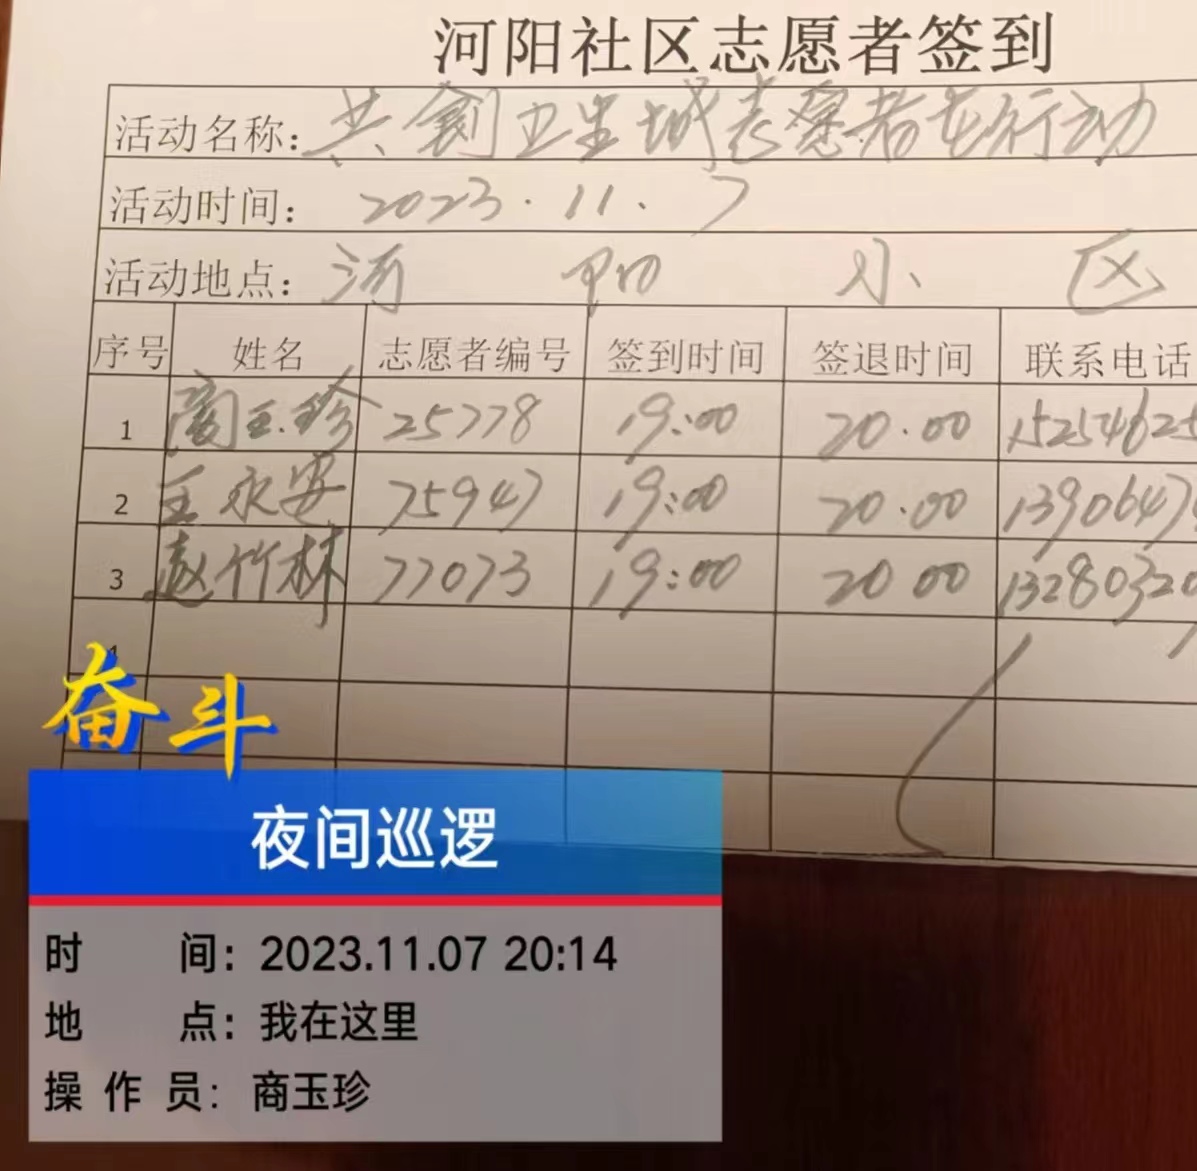 河阳社区志愿者签到
活动名称：共创卫生城志愿者在行动
活动时间：2023.11.7
活动地点：河阳小区
序号 姓名 志愿者编号 签到时间 签退时间 联系电话
1 商玉珍 25778 19:00 20.00 15254625
2 王永安 75947 19:00 20.00 1390647
3 赵竹林 77073 19:00 20 00 13280320
奋斗
夜间巡逻
时 间：2023.11.07 20:14
地 点：我在这里
操 作 员：商玉珍